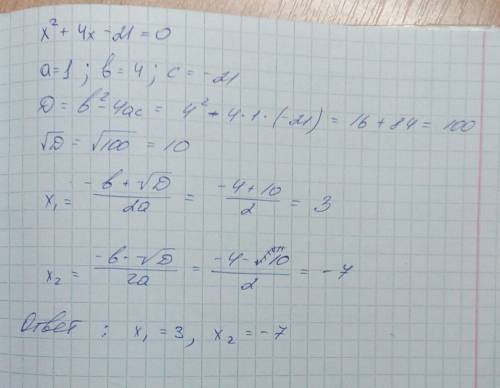 x² + 4x - 21 = 0
a=1 ; b = 4 ; c = -21
D = b² - 4ac = 4² - 4·1·(-21) = 16 + 84 = 100
√D = √100 = 10
x₁ = (-b + √D)/2a = (-4 + 10)/2 = 3
x₂ = (-b - √D)/2a = (-4 - 10)/2 = -7
Ответ : x₁ = 3, x₂ = -7